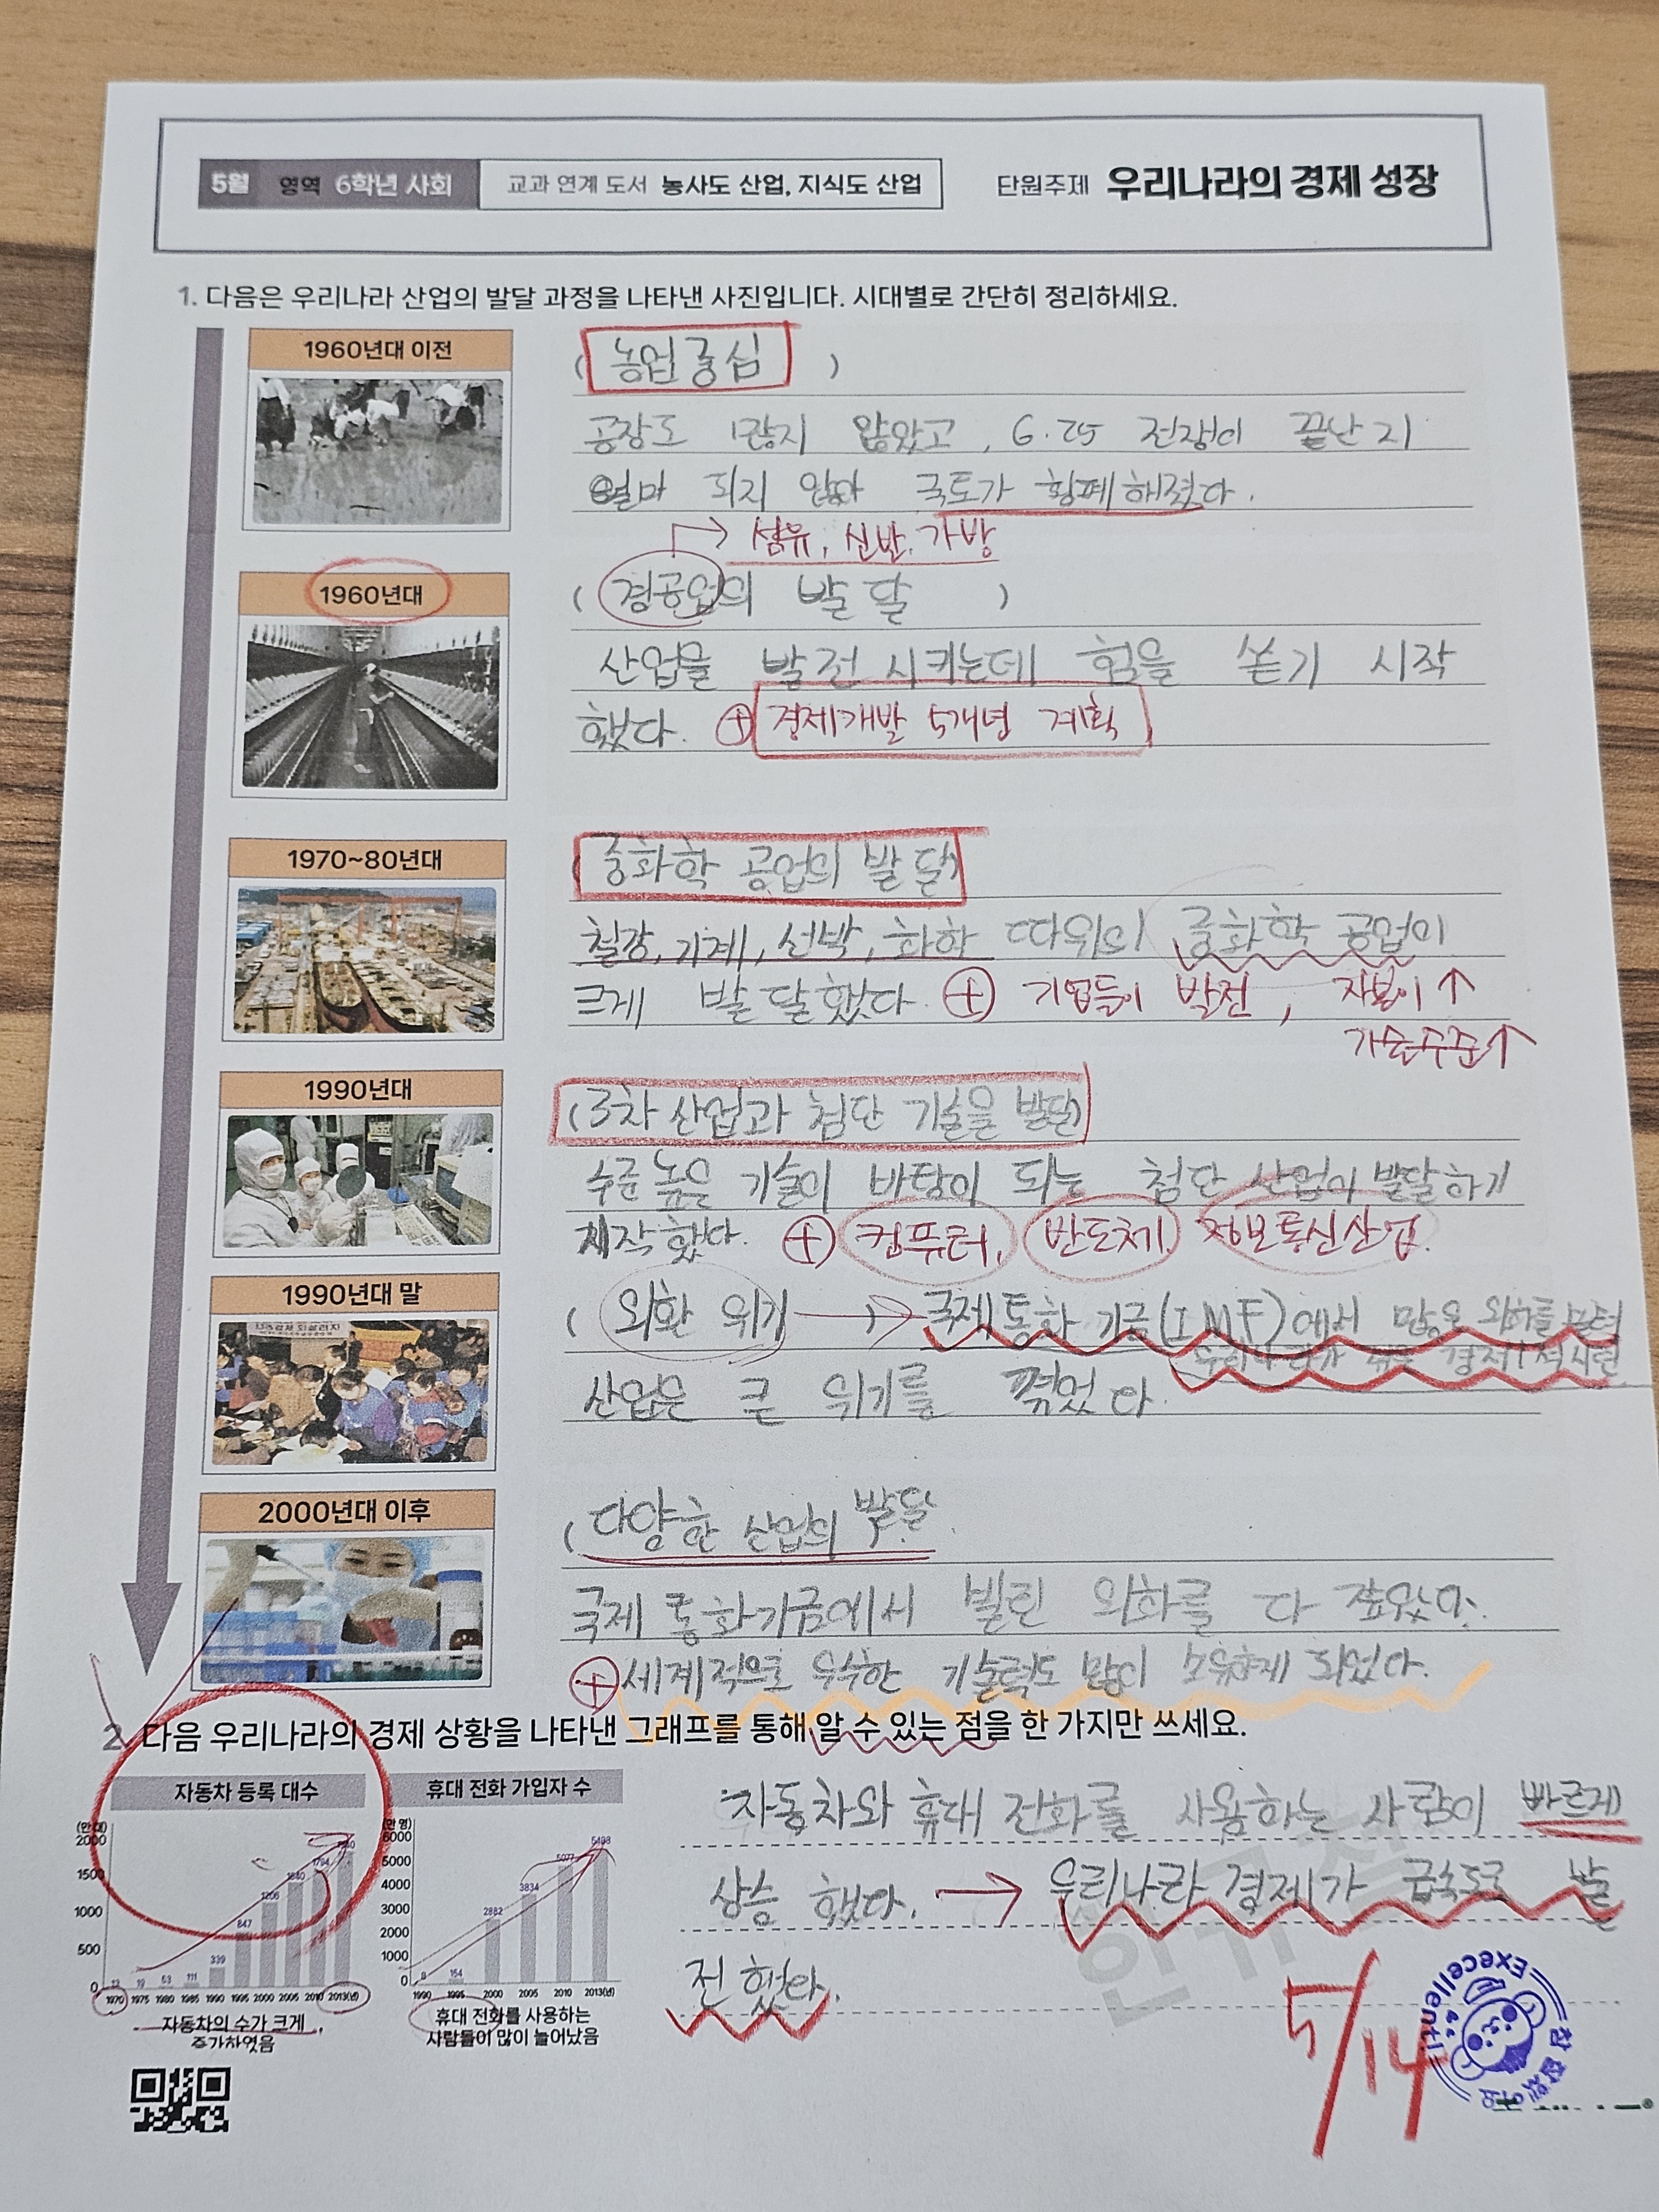 5월 영역 6학년 사회 교과 연계 도서 농사도 산업, 지식도 산업 단원주제 우리나라의 경제 성장
1. 다음은 우리나라 산업의 발달 과정을 나타낸 사진입니다. 시대별로 간단히 정리하세요.
1960년대 이전
( 농업중심 )
공장도 많지 않았고, 6.25 전쟁이 끝난지
얼마 되지 않아 국토가 황폐해졌다.
→ 섬유, 신발, 가방
1960년대
( 경공업의 발달 )
산업을 발전시키는데 힘을 쏟기 시작
했다. + 경제개발 5개년 계획
1970~80년대
(중화학 공업의 발달)
철강, 기계, 선박, 화학 따위의 중화학 공업이
크게 발달했다. + 기업들이 발전, 자본이↑
기술수준↑
1990년대
(3차 산업과 첨단 기술을 발달)
수준 높은 기술이 바탕이 되는 첨단 산업이 발달하기
시작했다. + 컴퓨터, 반도체, 정보통신산업.
1990년대 말
( 외환 위기 ) → 국제통화 기금(IMF)에서 많은 외화를
우리나라가
산업은 큰 위기를 겪었다.
2000년대 이후
( 다양한 산업의 발달
국제 통화기금에서 빌린 외화를 다 갚았다.
+ 세계적으로 우수한 기술력도 많이 소유하게 되었다.
2. 다음 우리나라의 경제 상황을 나타낸 그래프를 통해 알 수 있는 점을 한 가지만 쓰세요.
자동차 등록 대수
(만 대)
2000
1500
1000
500
0
12 19 53 111 339 847 1206 1540 1794 1940
1970 1975 1980 1985 1990 1995 2000 2005 2010 2013(년)
자동차의 수가 크게
증가하였음
휴대 전화 가입자 수
(만 명)
6000
5000
4000
3000
2000
1000
0
8 164 2682 3834 5077 5468
1990 1995 2000 2005 2010 2013(년)
휴대 전화를 사용하는
사람들이 많이 늘어났음
자동차와 휴대 전화를 사용하는 사람이 빠르게
상승 했다. → 우리나라 경제가 급속도로 발
전 했다.
한우리
5/14
Execellent!
참 잘했어요